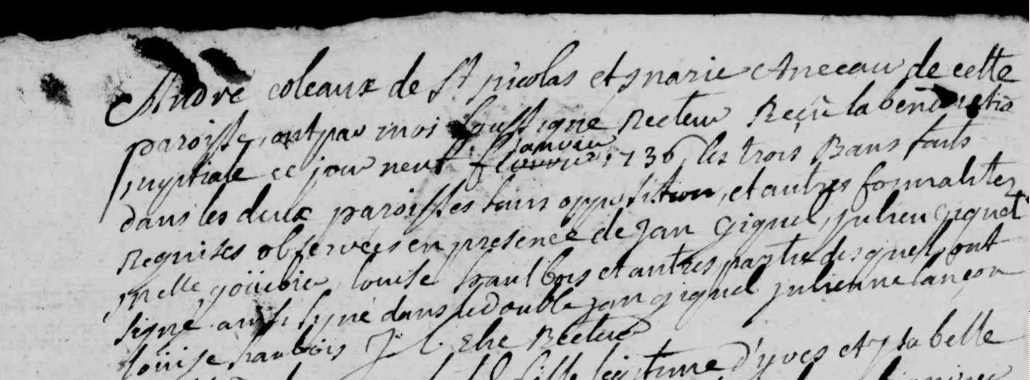 André coleaux de St nicolas et marie Aneeau de cette
paroisse, ont par moi soussigné Recteur Reçu la benediction
nuptiale ce jour neuf janvier 1736, les trois Bans faits
dans les deux paroisses sans opposition, et autres formalitez
Requises observées en presence de Jan gignel, julien gignel
louise haulbois et autres partie desquels ont
signé ainsi signé dans le double jan gignel julienne lançon
louise haubois Recteur
fille legitime d'yves et ysabelle